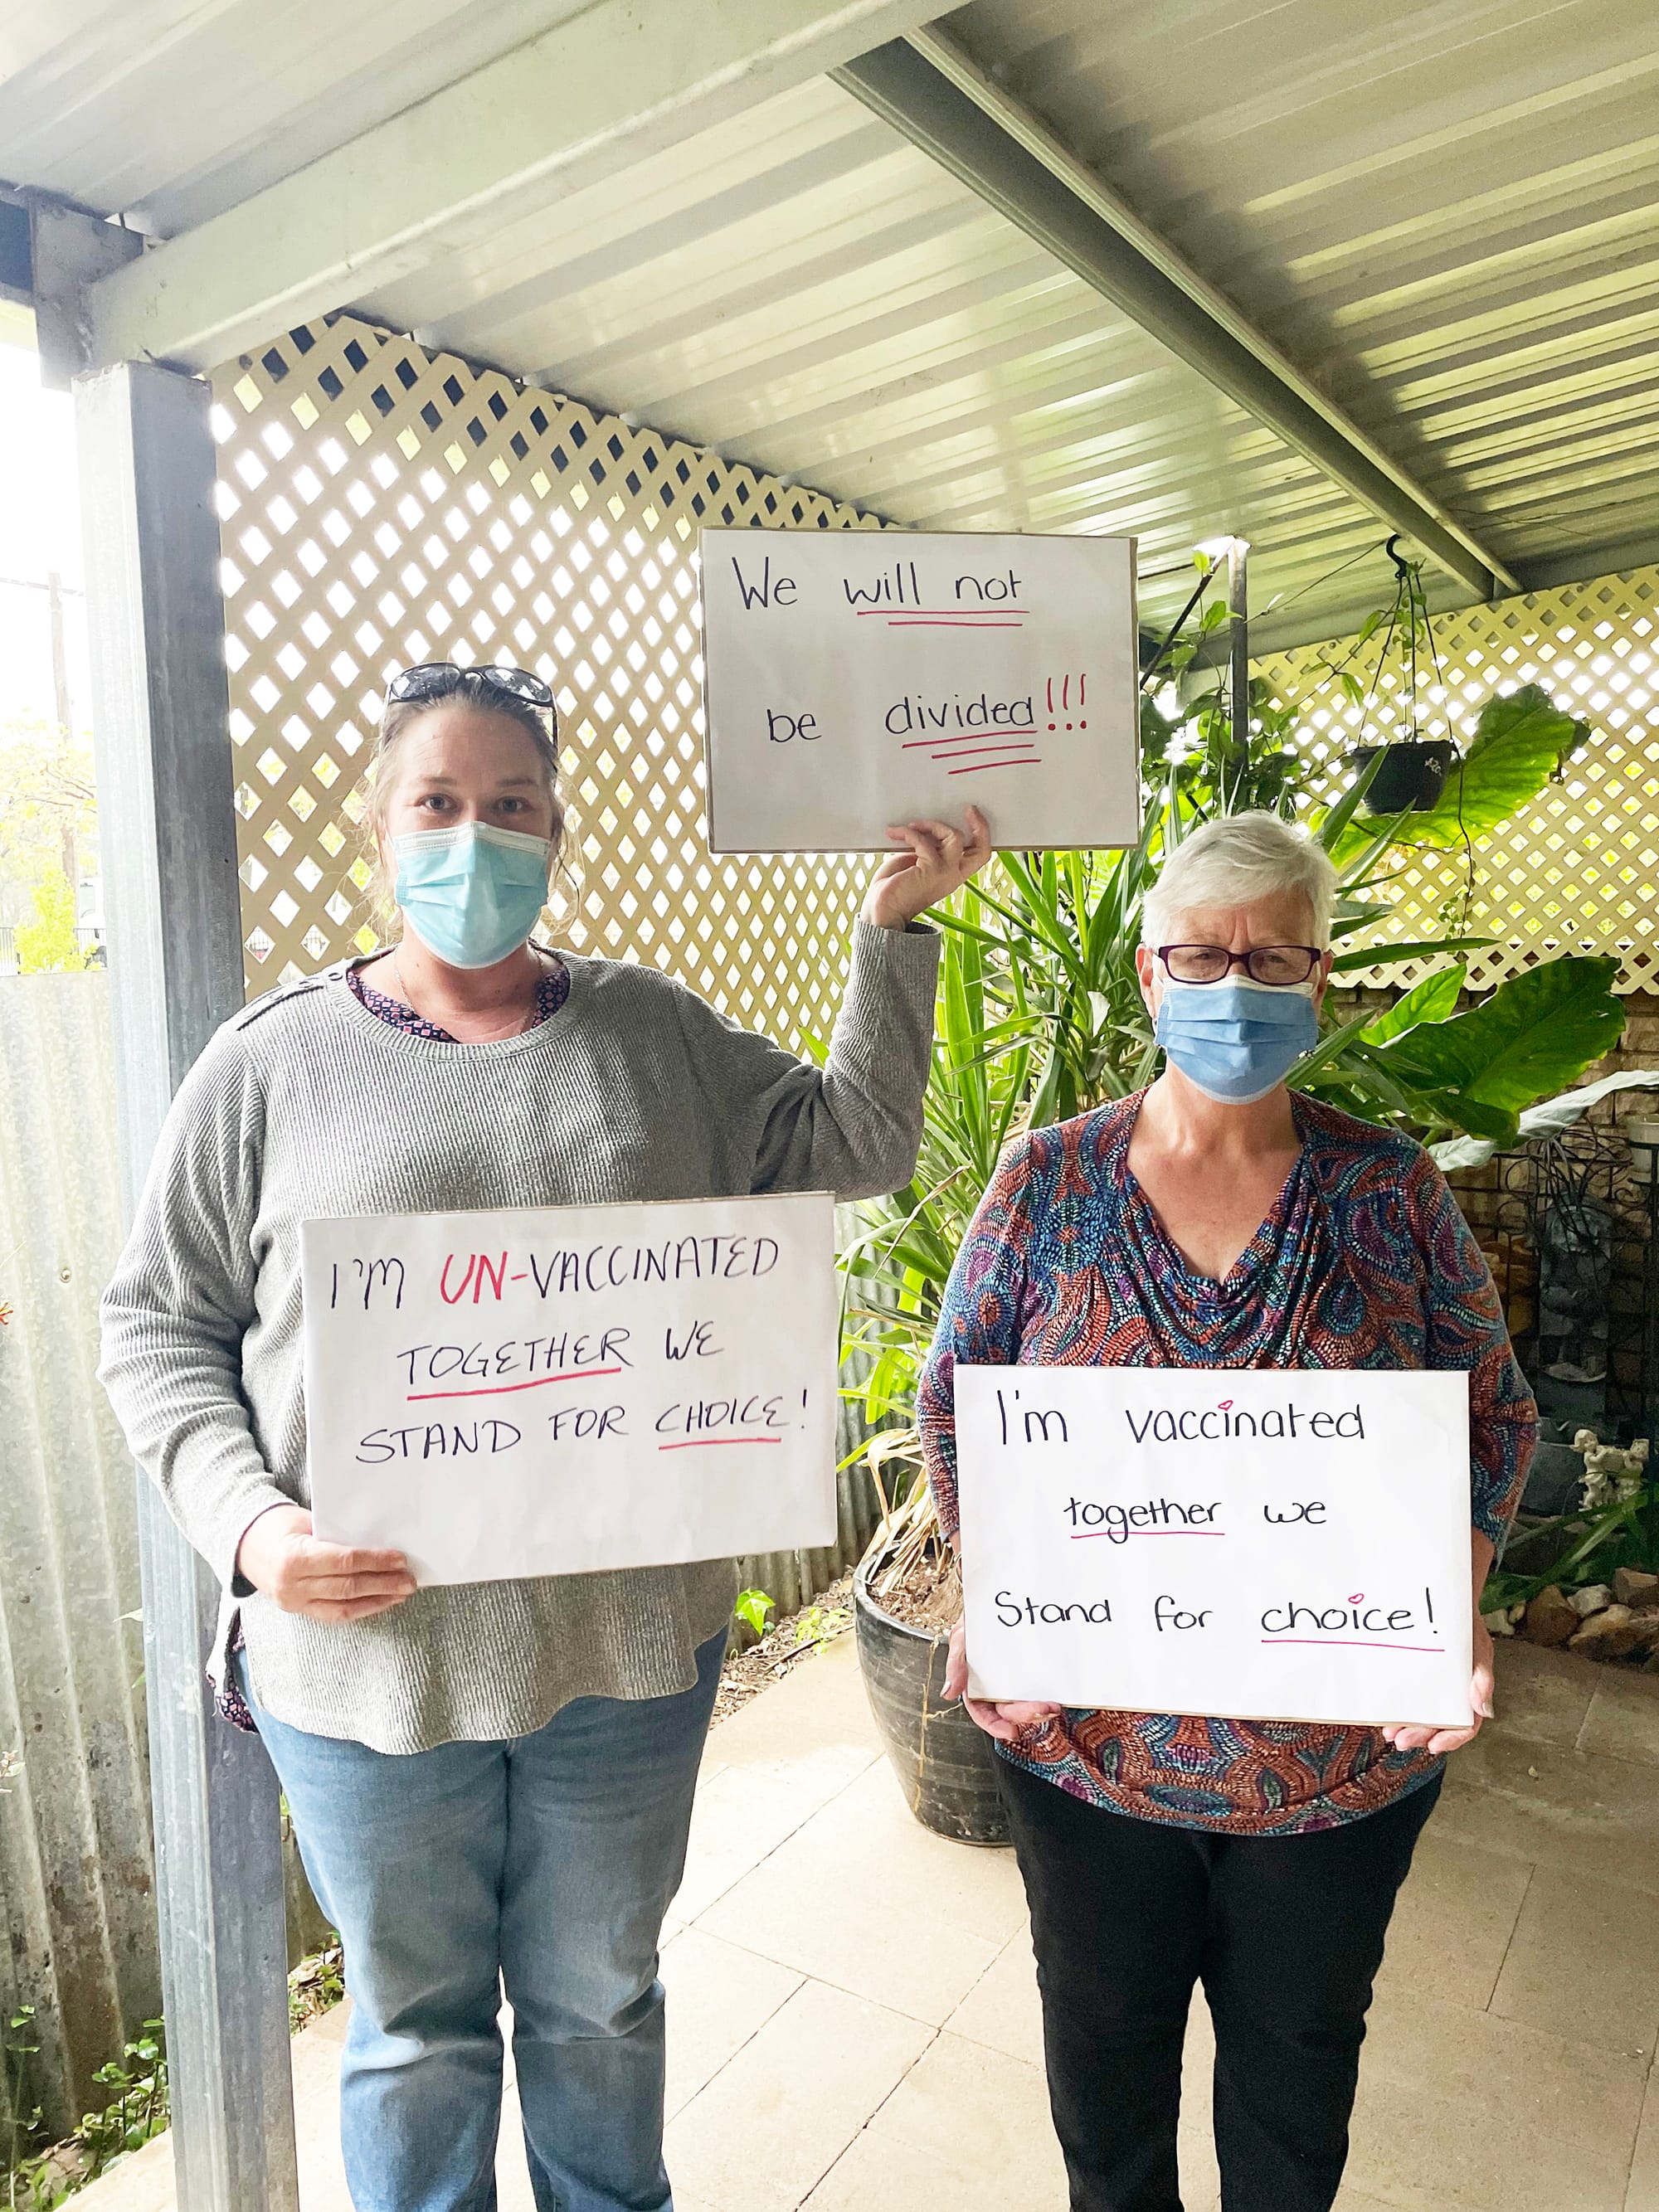 We will not
be divided!!!
I'M UN-VACCINATED
TOGETHER WE
STAND FOR CHOICE!
I'm vaccinated
together we
Stand for choice!